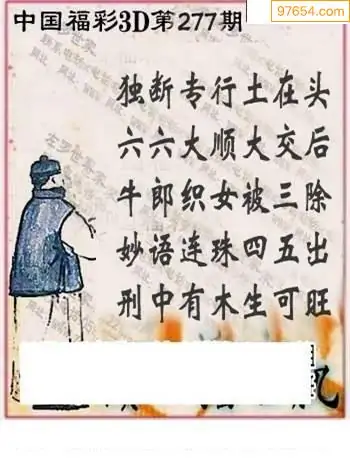 97654.com
中国福彩3D第277期
独断专行土在头
六六大顺大交后
牛郎织女被三除
妙语连珠四五出
刑中有木生可旺